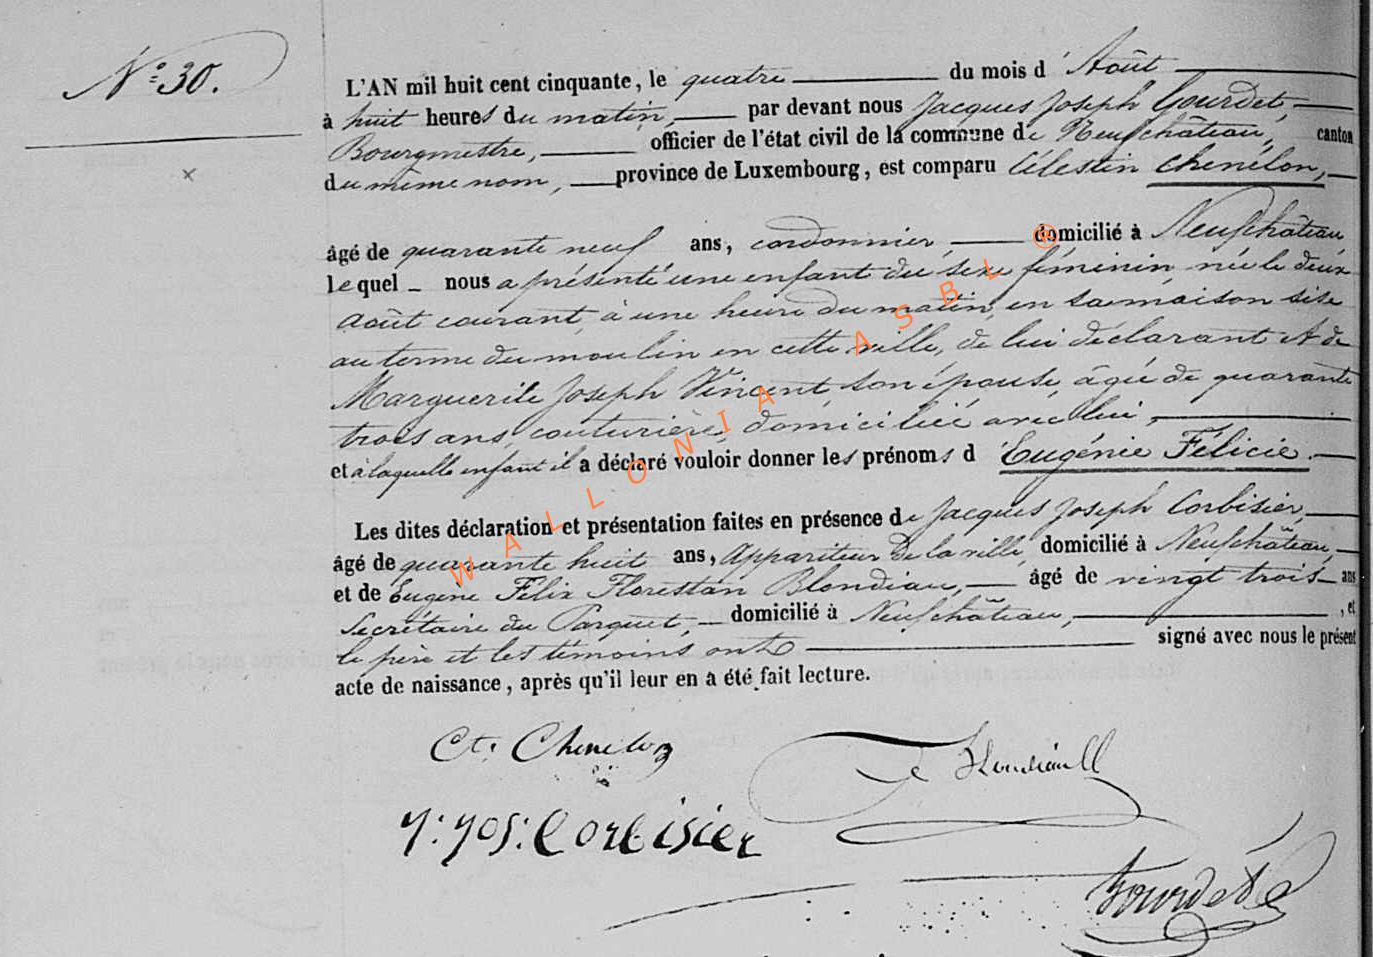 N° 30.
L'AN mil huit cent cinquante, le quatre du mois d' Août
à huit heures du matin, par devant nous Jacques Joseph Gourdet,
Bourgmestre, officier de l'état civil de la commune de Neufchâteau, canton
du même nom, province de Luxembourg, est comparu Célestin Chenélon,
âgé de quarante neuf ans, cordonnier, domicilié à Neufchâteau,
lequel nous a présenté une enfant du sexe féminin née le deux
août courant, à une heure du matin, en sa maison sise
au terme du moulin en cette ville, de lui déclarant et de
Marguerite Joseph Vincent, son épouse, âgée de quarante
trois ans, couturière, domiciliée avec lui,
et à laquelle enfant il a déclaré vouloir donner les prénoms d' Eugénie Félicie.
Les dites déclaration et présentation faites en présence de Jacques Joseph Corbisier,
âgé de quarante huit ans, Appariteur de la ville, domicilié à Neufchâteau,
et de Eugène Félix Florestan Blondiau, âgé de vingt trois ans
Secrétaire du Parquet, domicilié à Neufchâteau, , et
le père et les témoins ont signé avec nous le présent
acte de naissance, après qu'il leur en a été fait lecture.
Ct. Chenelon
J: Jos: Corbisier
Gourdet
WALLONIA ASBL ®